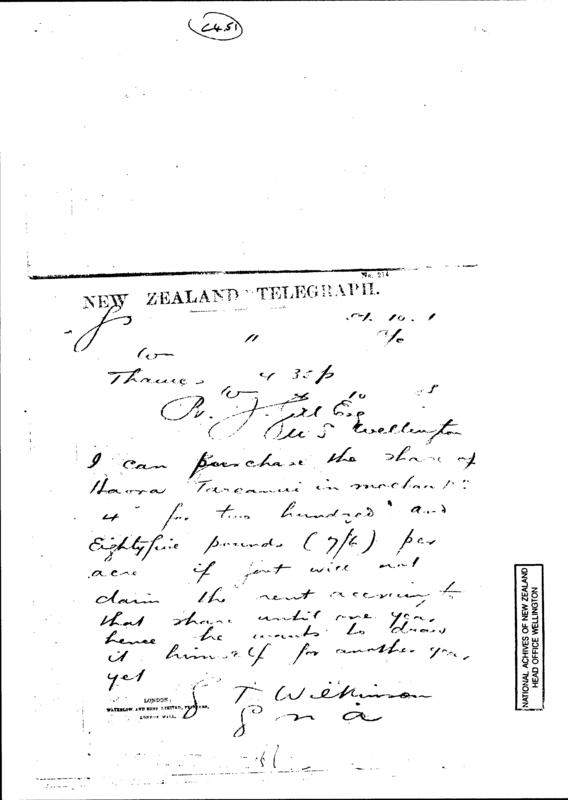 C451
No. 214
NEW ZEALAND TELEGRAPH.
Thames 4 35 p
Gill Esq
Wellington
I can purchase the share of
Haora in
4 for two hundred and
Eightyfive pounds (7/6) per
acre if govt will not
claim the rent accruing to
that share until one year
hence he wants to draw
it himself for another year
yet
T Wilkinson
LONDON:
WATERLOW AND SONS LIMITED, PRINTERS,
LONDON WALL.
NATIONAL ACHIVES OF NEW ZEALAND
HEAD OFFICE WELLINGTON